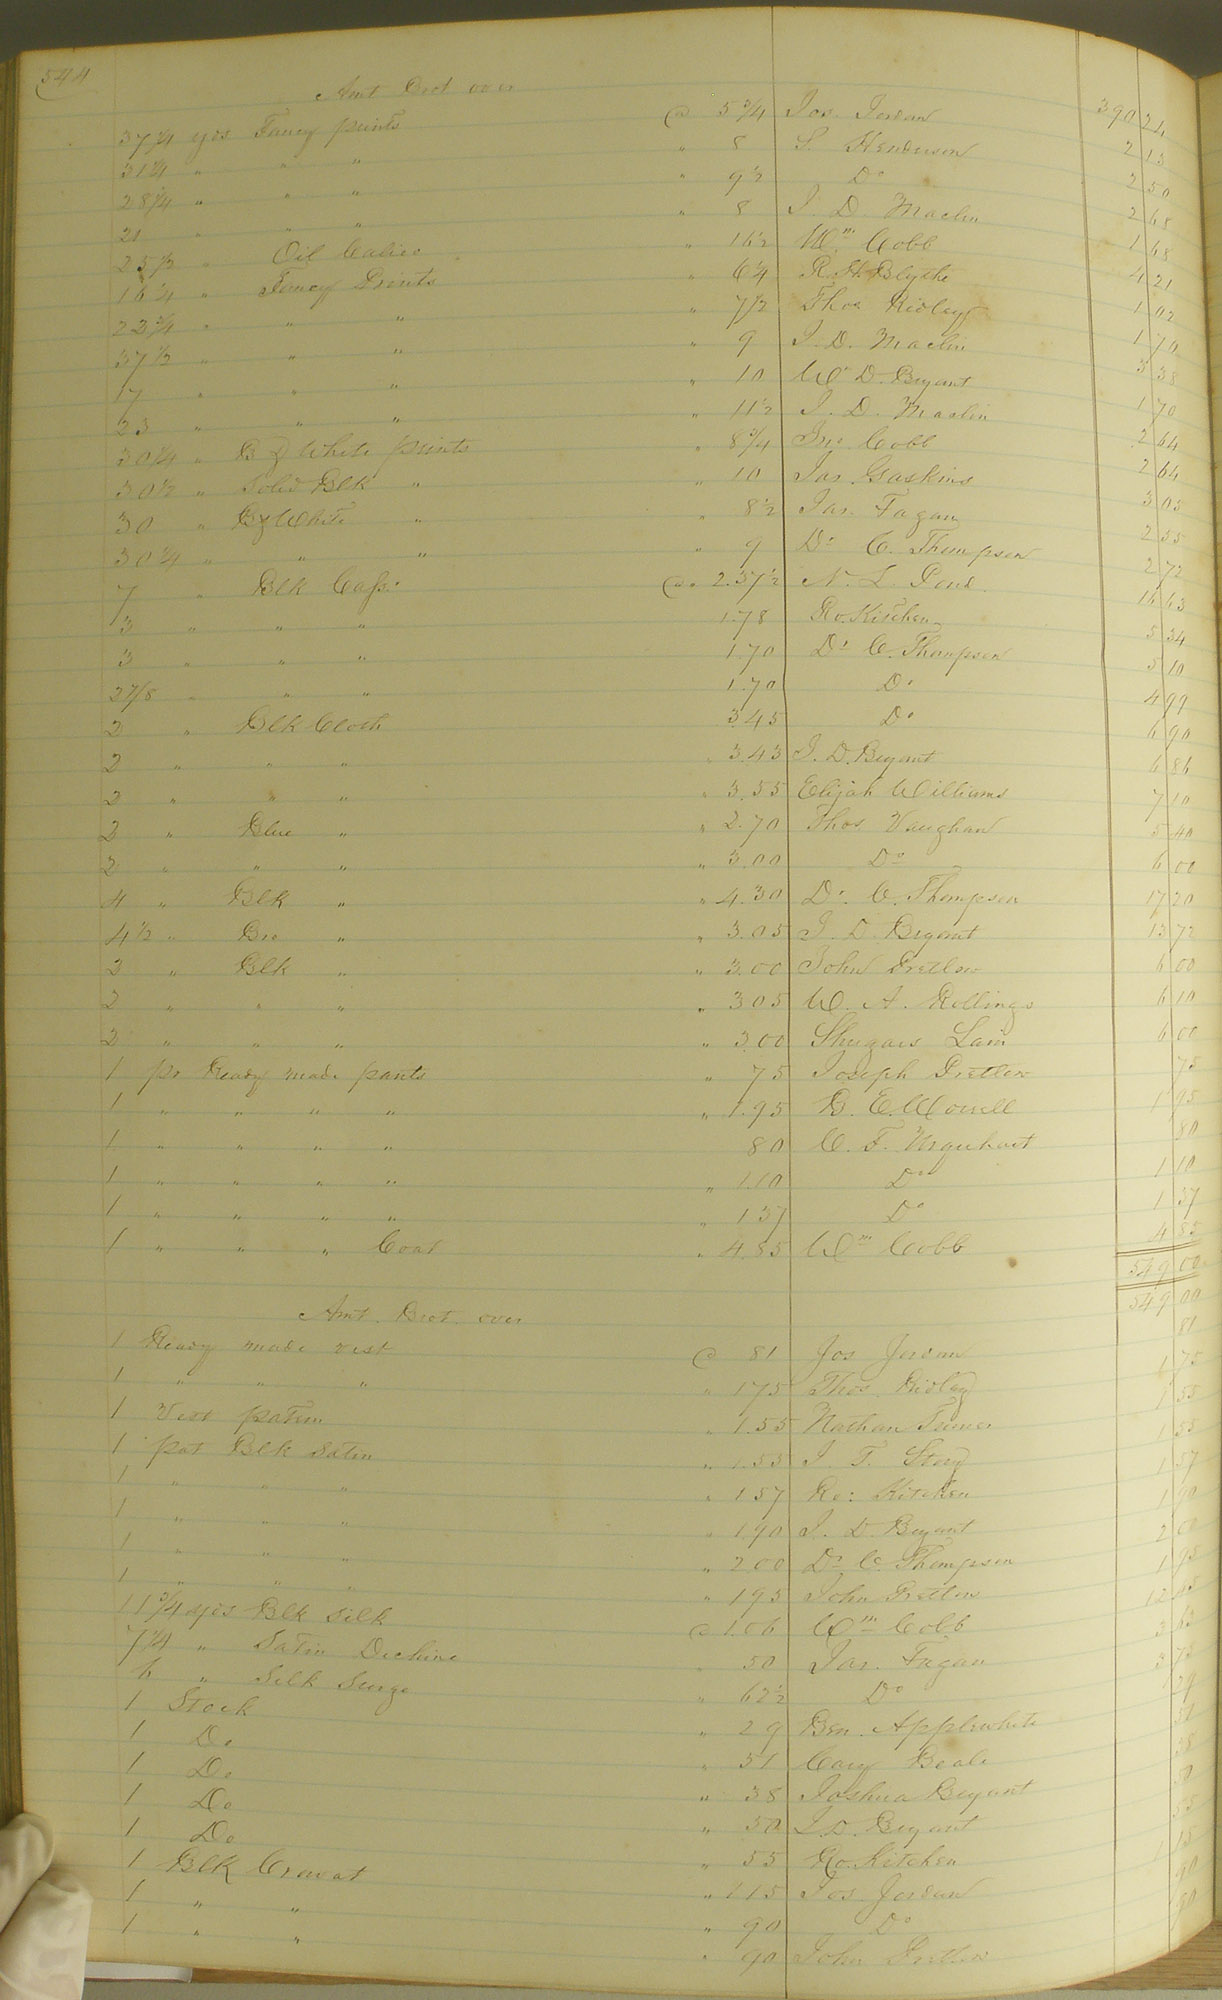 544
Amt Brot over 390 24
37 1/4 yds Fancy prints @ 5 3/4 Jos Jordan 2 13
31 1/4 " " " " 8 S. Henderson 2 50
28 1/4 " " " " 9 1/2 Do 2 68
21 " " " " 8 J. D Maclin 1 68
25 1/2 " Oil Calico " 16 1/2 Wm Cobb 4 21
16 1/4 " Fancy Prints " 6 1/4 R. H. Blythe 1 02
23 3/4 " " " " 7 1/2 Thos Ridley 1 70
37 1/2 " " " " 9 J. D. Maclin 3 38
17 " " " " 10 W D. Bryant 1 70
23 " " " " 11 1/2 J. D. Maclin 2 64
30 1/4 " B & White prints " 8 3/4 Jno Cobb 2 64
30 1/2 " Solid Blk " " 10 Jas Gaskins 3 05
30 " B & White " " 8 1/2 Jas. Fagan 2 55
30 1/4 " " " " 9 Dr C. Thompson 2 72
7 " Blk Cass: @ 2.37 1/2 N. L. Pond 16 63
3 " " " 1.78 Ro. Kitchen 5 34
3 " " " 1.70 Dr C. Thompson 5 10
2 7/8 " " " 1.70 Do 4 99
2 " Blk Cloth 3.45 Do 6 90
2 " " " " 3.43 J. D. Bryant 6 86
2 " " " " 3.55 Elijah Williams 7 10
2 " Blue " " 2.70 Thos Vaughan 5 40
2 " " " " 3.00 Do 6 00
4 " Blk " " 4.30 Dr C. Thompson 17 20
4 1/2 " Bro " " 3.05 J. D. Bryant 13 72
2 " Blk " " 3.00 John Pretlow 6 00
2 " " " " 3 05 W. A. Rollings 6 10
2 " " " " 3 00 Shugars Lain 6 00
1 pr Ready made pants " 75 Joseph Pretlow 75
1 " " " " " 1.95 B. E. Worrell 1 95
1 " " " " 80 C. F. Urquhart 80
1 " " " " " 1.10 Do 1 10
1 " " " " " 1 37 Do 1 37
1 " " " Coat " 4.85 Wm Cobb 4 85
549 00
Amt. Brot. over 549 00
1 Ready made vest @ 81 Jos Jordan 81
1 " " " " 1 75 Thos. Ridley 1 75
1 Vest pattern " 1.55 Nathan 1 55
1 pat Blk Satin " 1.55 J. T. Story 1 55
1 " " " " 1 57 Ro: Kitchen 1 57
1 " " " " 1 90 J. D. Bryant 1 90
1 " " " " 2 00 Dr C. Thompson 2 00
1 " " " " 1 95 John Pretlow 1 95
11 3/4 yds Blk Silk @ 1.06 Wm Cobb 12 45
7 1/4 " Satin Dechine " 50 Jas. Fagan 3 63
6 " Silk Surge " 62 1/2 Do 3 75
1 Stock " 29 Ben. Applewhite 29
1 Do " 51 Cary Beale 51
1 Do " 38 Joshua Bryant 38
1 Do " 50 J. D. Bryant 50
1 Do " 55 Ro. Kitchen 55
1 Blk Cravat " 1 15 Jos Jordan 1 15
1 " " " 90 Do 90
1 " " " 90 John Pretlow 90